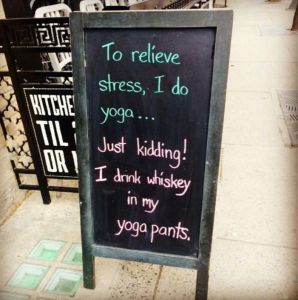 To relieve
stress, I do
yoga...
Just kidding!
I drink whiskey
in my
yoga pants.
KITCHE
TIL
OR